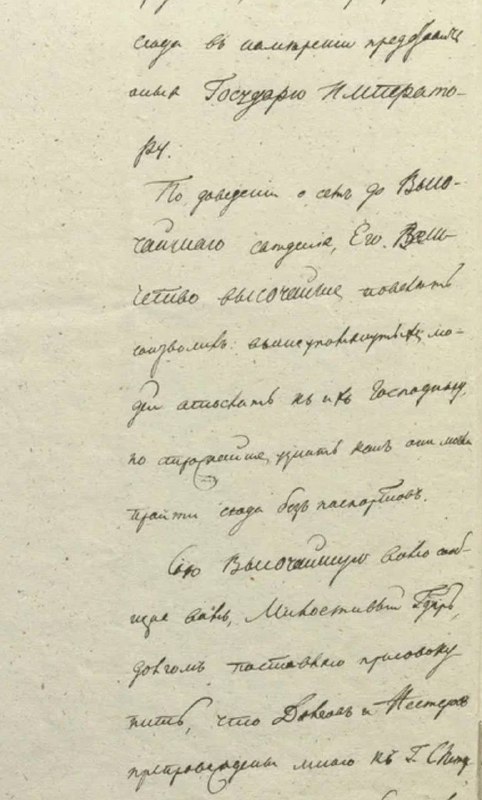 сюда въ намѣреніи
Государю Императо-
ру.
По доведеніи о семъ до Высо-
чайшаго свѣденія, Его Вели-
чество высочайше повелѣть
соизволилъ: вышеупомянутыхъ лю-
дей отослать къ ихъ Господину,
но строжайше узнать какъ они могли
прайти сюда безъ паспортовъ.
Сію Высочайшую волю сооб-
щая вамъ, Милостивый Гдрь,
долгомъ поставляю присовоку
пить, что и Нестеровъ
препровождены мною къ Г.